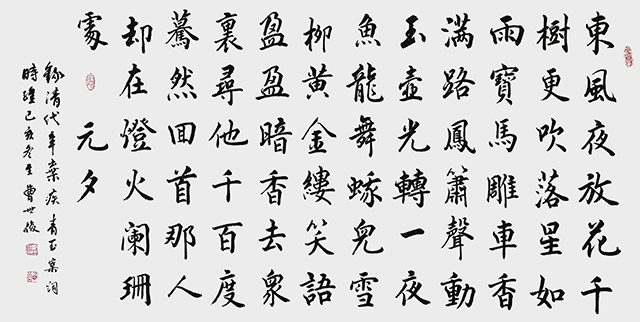 東風夜放花千
樹更吹落星如
雨寶馬雕車香
滿路鳳簫聲動
玉壺光轉一夜
魚龍舞蛾兒雪
柳黃金縷笑語
盈盈暗香去眾
裏尋他千百度
驀然回首那人
却在燈火阑珊
處 元夕
錄清代辛棄疾青玉案詞
時維己亥冬至曹世俊